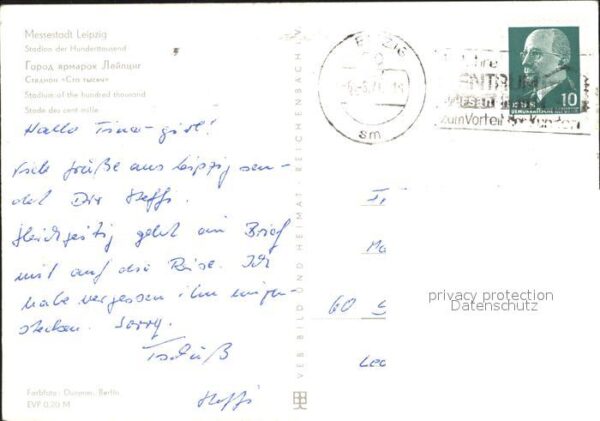 Messestadt Leipzig
Stadion der Hunderttausend
Город ярмарок Лейпциг
Стадион «Сто тысяч»
Stadium of the hundred thousand
Stade des cent mille
Hallo Tina-girl!
Grüße aus Leipzig sen-
det Dir Steffi.
Gleichzeitig geht ein Brief
mit auf die Reise. Ich
habe vergessen ihn einzu-
stecken. Sorry.
Tschüß
Steffi
Farbfoto: Berlin
EVP 0,20 M
VEB BILD UND HEIMAT · REICHENBACH I. V.
LEIPZIG
sm
zum Vorteil der Kunden
10
60
privacy protection
Datenschutz